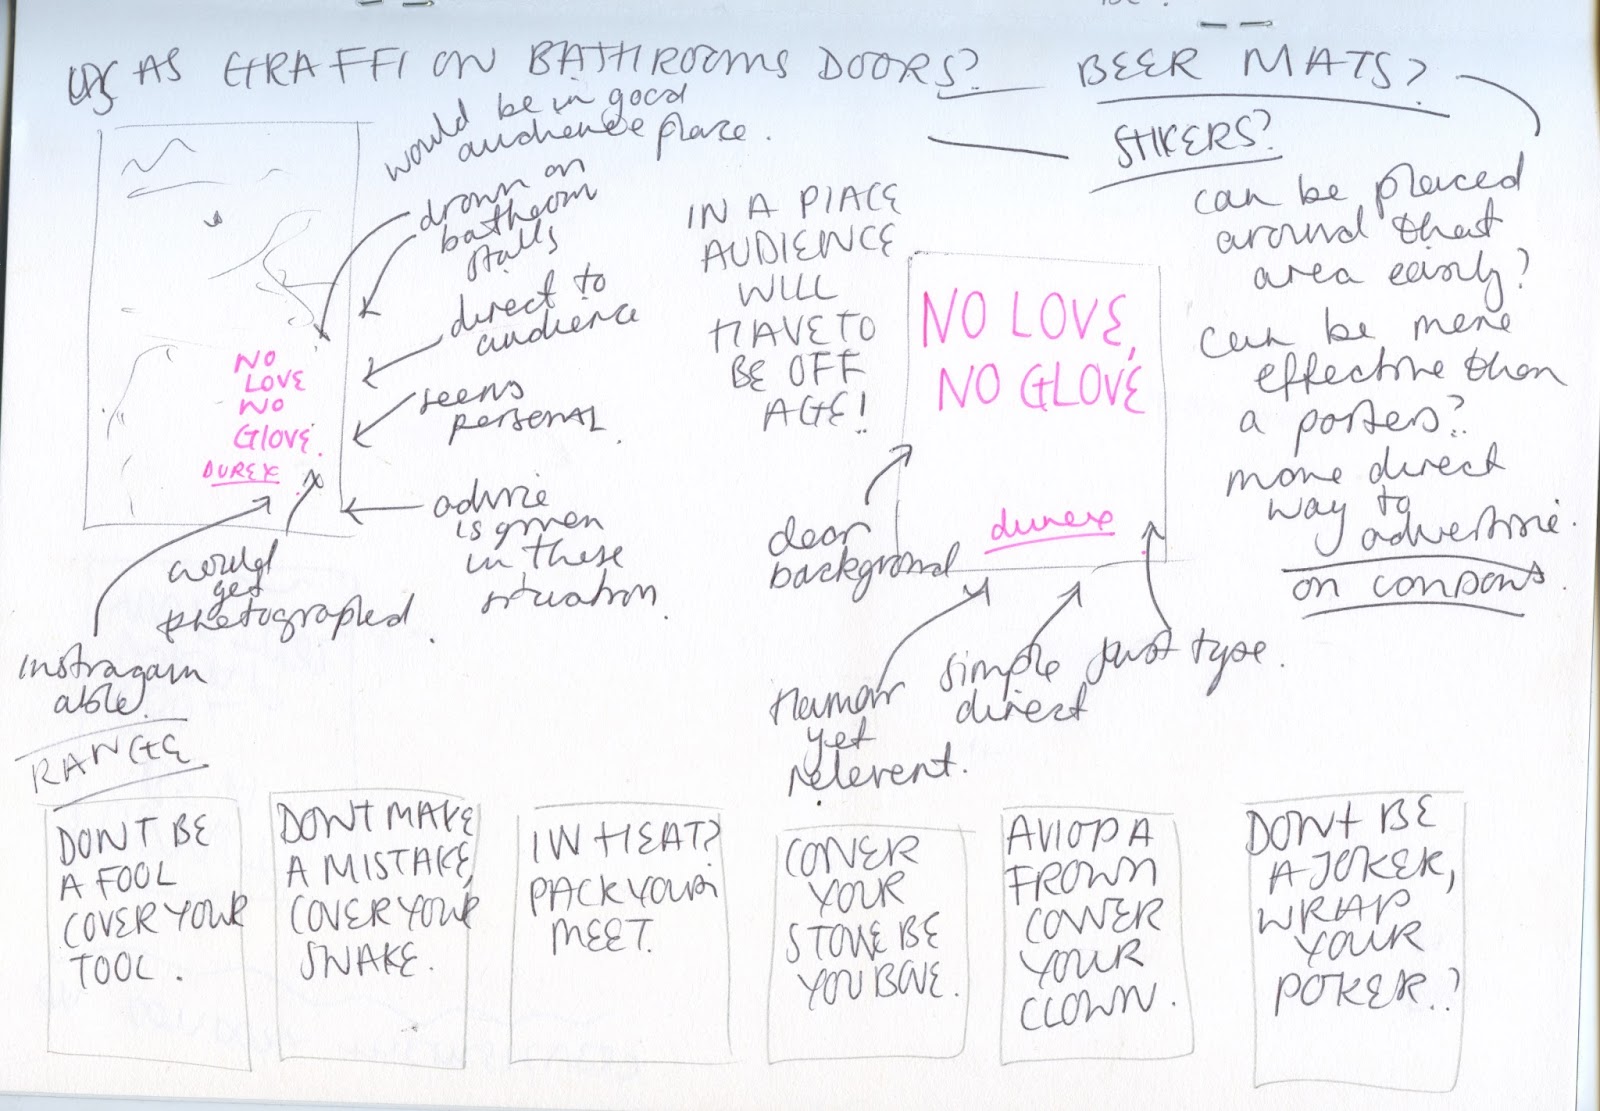 AS GRAFFI ON BATHROOMS DOORS?
BEER MATS?
STIKERS?
would be in good
audience place.
drawn on
bathroom
stalls
direct to
audience
seems
personal.
advise
is given
in these
situation.
NO
LOVE
NO
GLOVE.
DUREX
would
get
photographed.
instragam
able.
IN A PLACE
AUDIENCE
WILL
HAVE TO
BE OFF
AGE!
NO LOVE,
NO GLOVE
durex
clear
background
Humour
yet
relevent.
simple
direct
just type.
can be placed
around that
area easily?
can be more
effective than
a posters?
more direct
way to
advertise.
on condoms.
RANGE
DONT BE
A FOOL
COVER YOUR
TOOL.
DONT MAKE
A MISTAKE,
COVER YOUR
SNAKE.
IN HEAT?
PACK YOUR
MEET.
COVER
YOUR
STOVE BE
YOU BOVE.
AVIOD A
FROWN
COVER
YOUR
CLOWN.
DONT BE
A JOKER,
WRAP
YOUR
POKER.?